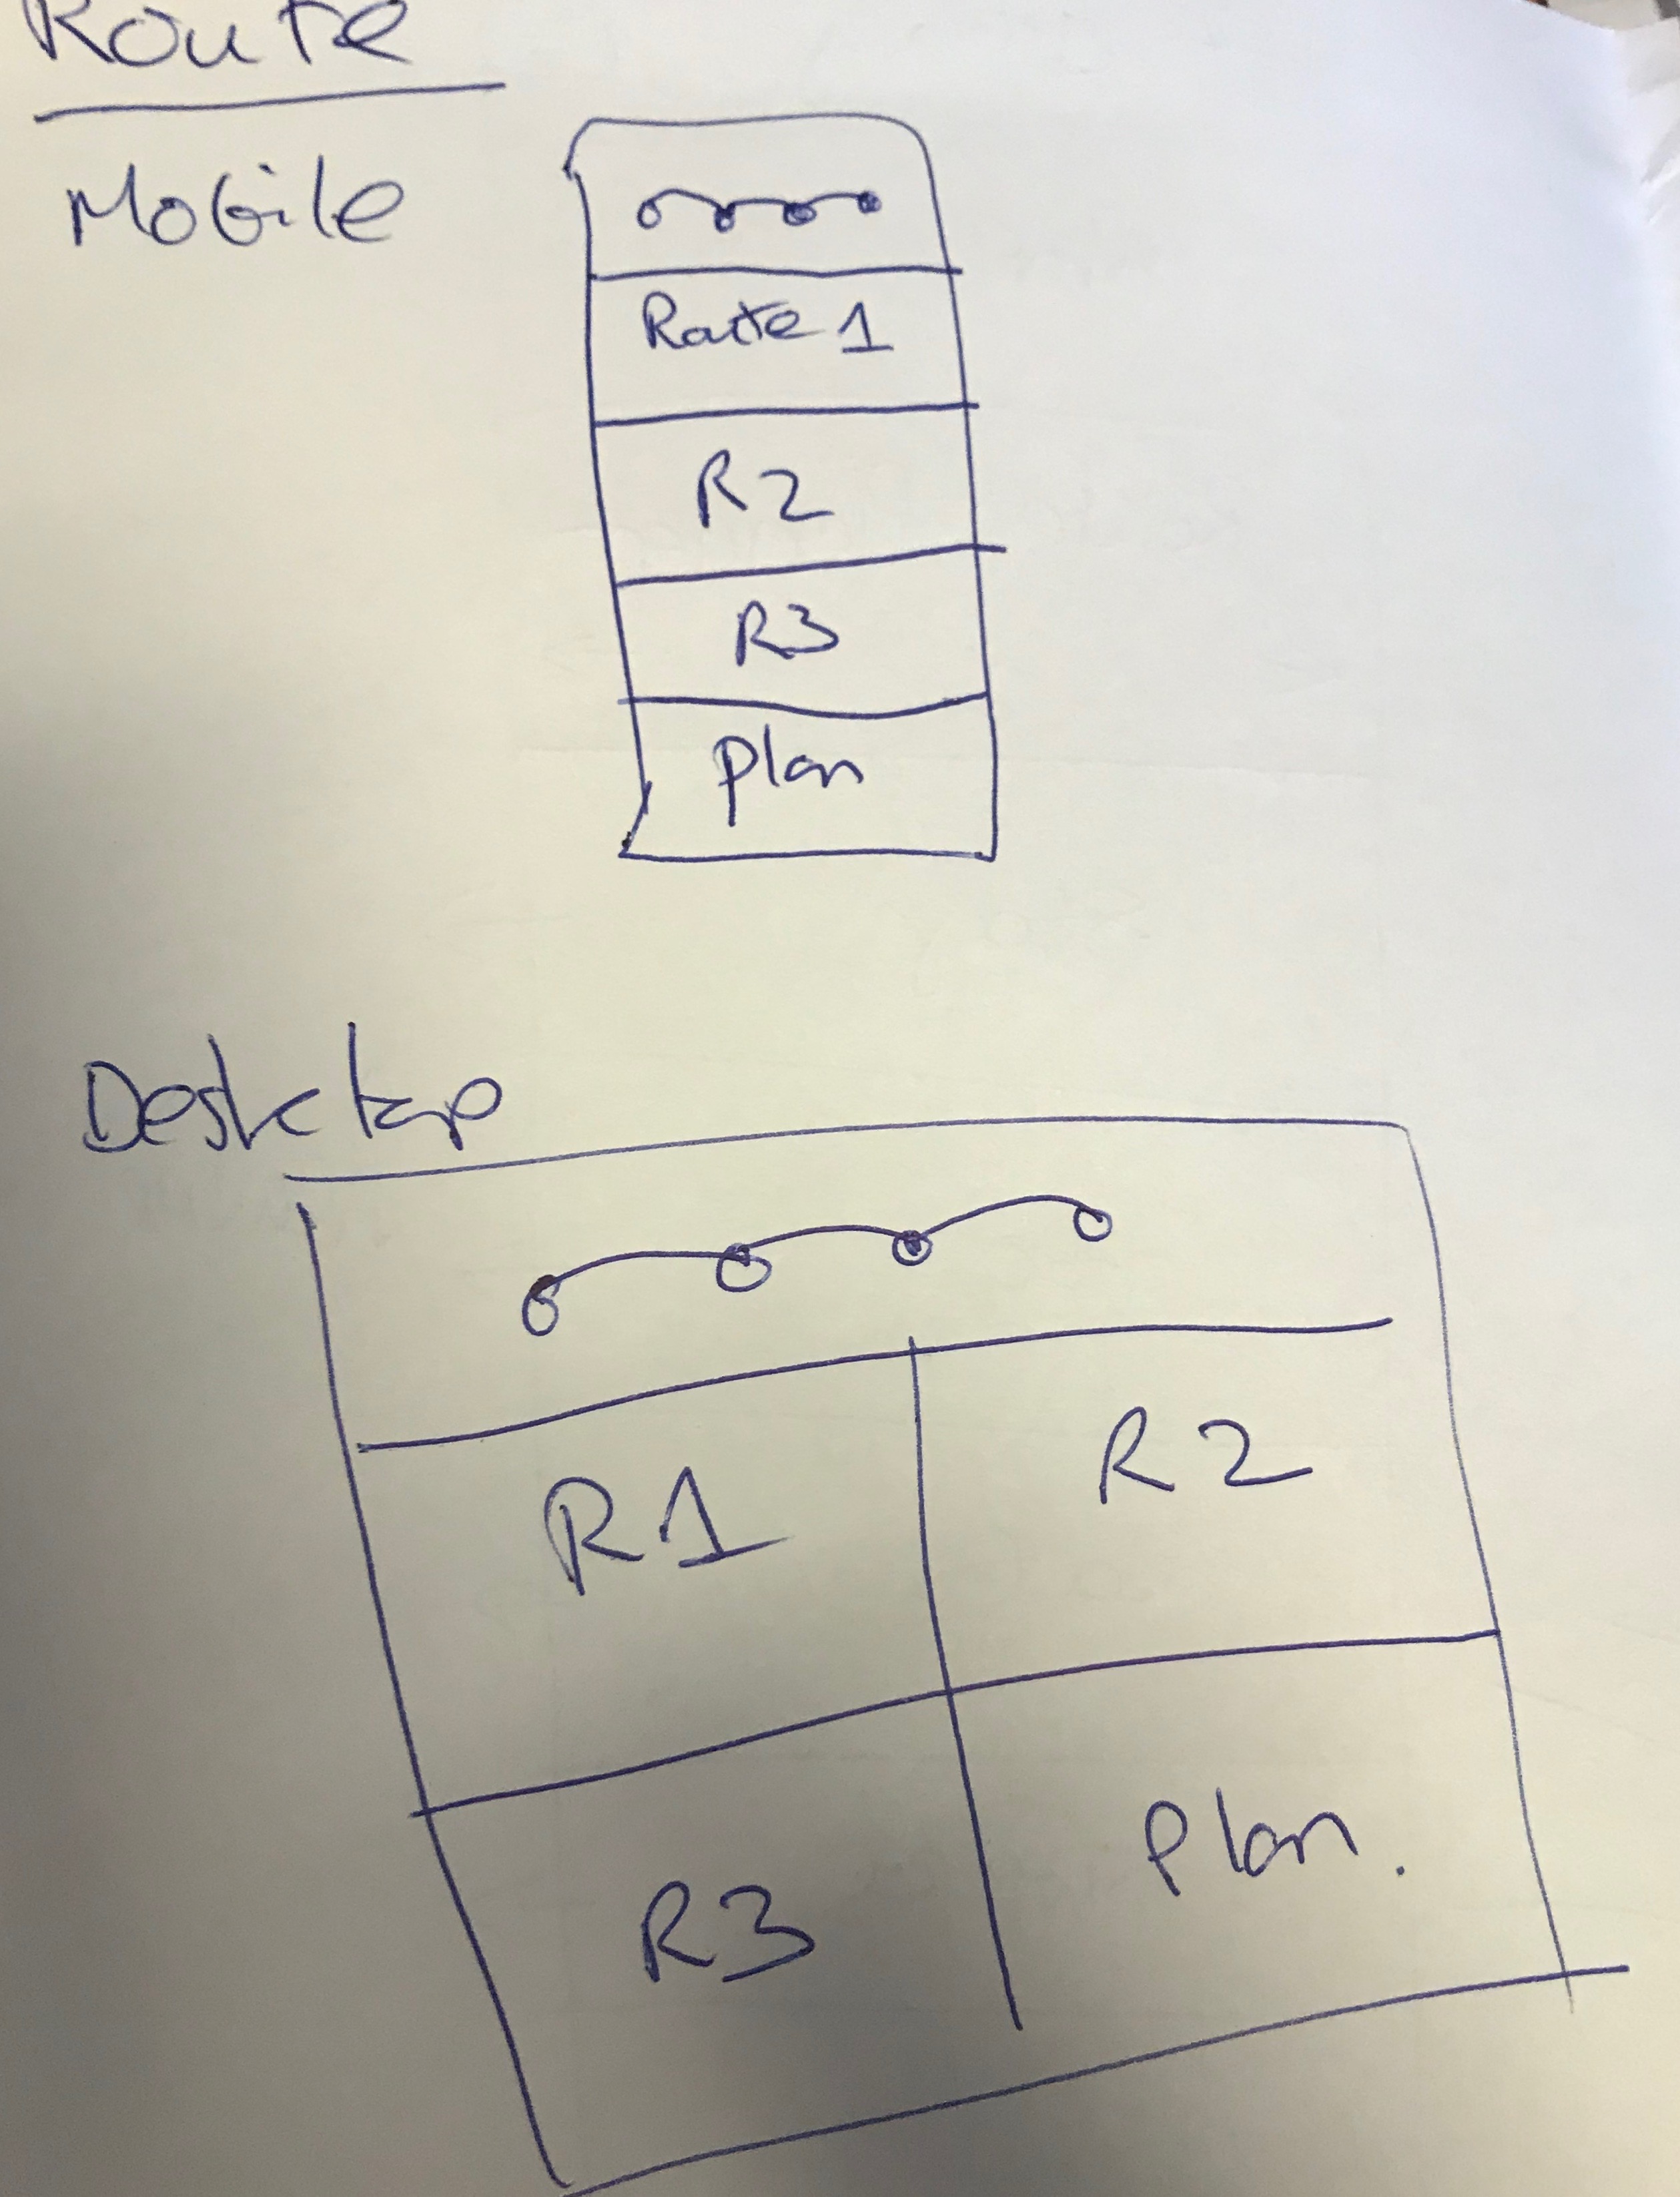 Route
Mobile
Route 1
R2
R3
plan
Desktop
R1
R2
R3
Plan.